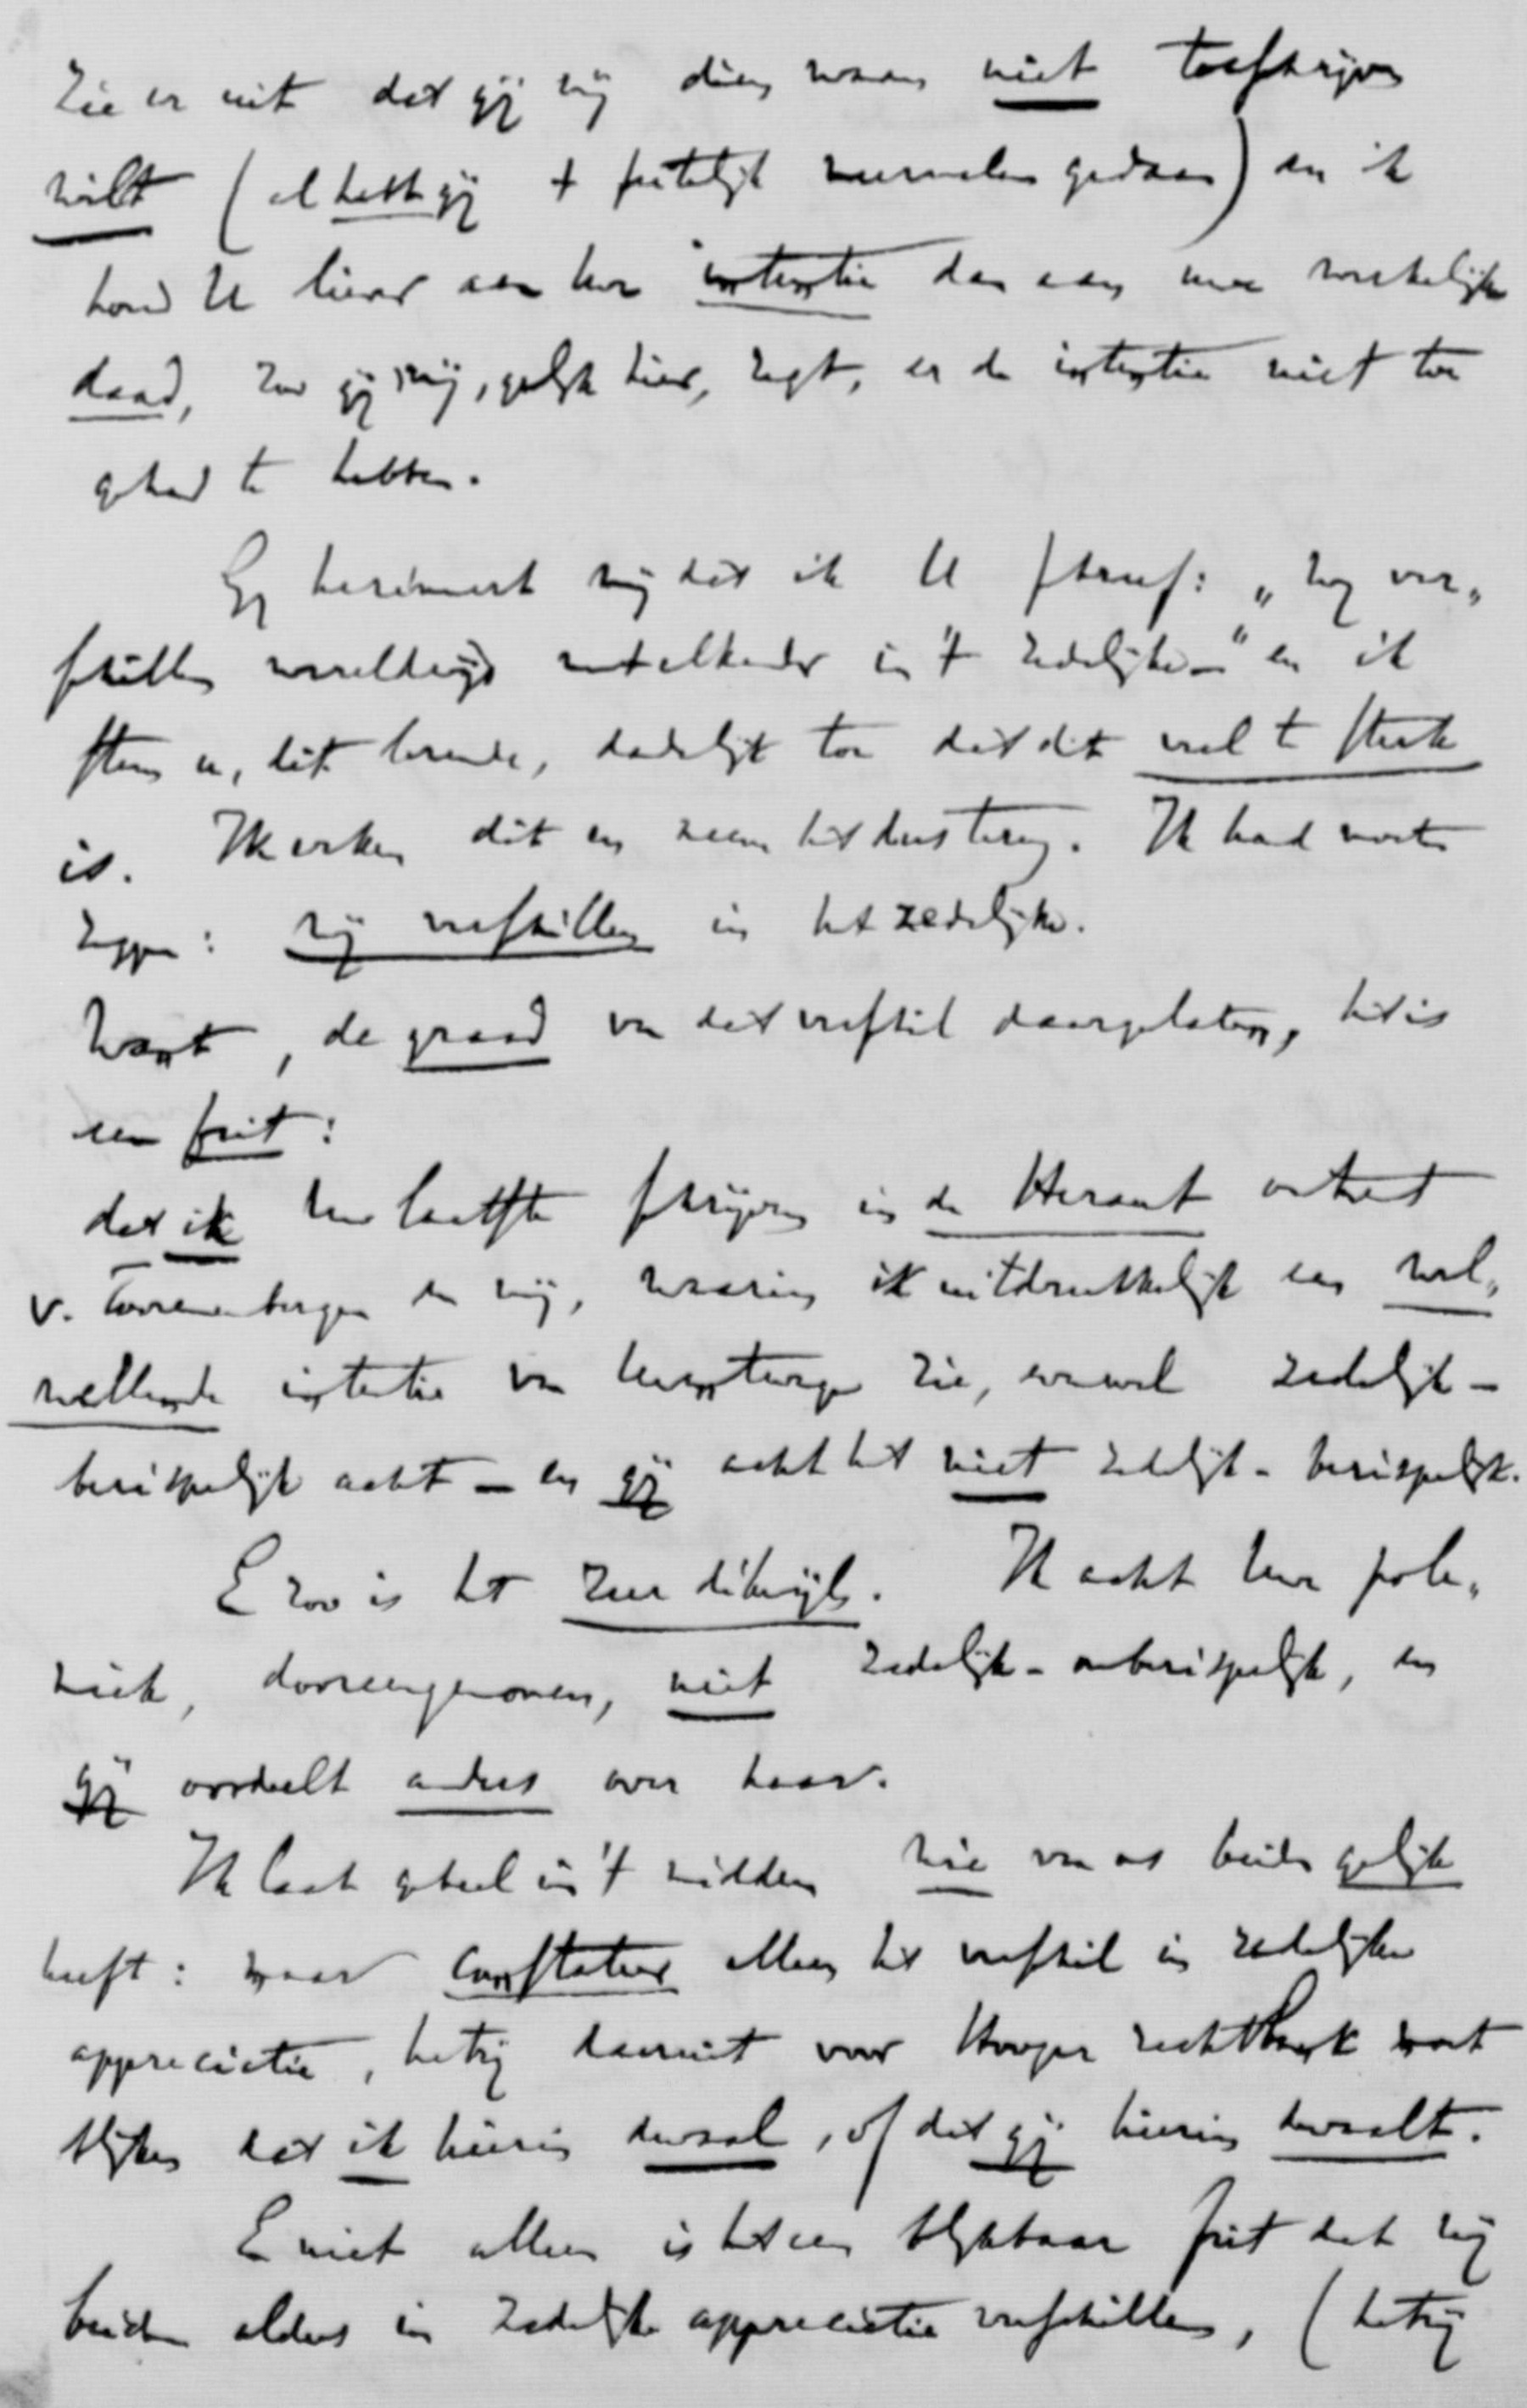 Zie er uit dat gij mij dien naam niet toeschrijven
wilt (al hebt gij 't feitelijk meermalen gedaan) en ik
houd U liever aan Uwe intentie dan aan uwe werkelijke
daad, zoo gij mij, gelijk hier, zegt, er de intentie niet toe
gehad te hebben.
Gij herinnert mij dat ik U schreef: „wij ver„
schillen wereldwijd met elkander in 't zedelijke —" en ik
stem u, dit lezende, dadelijk toe dat dit veel te sterk
is. Ik erken dit en neem het dus terug. Ik had moeten
zeggen: wij verschillen in het zedelijke.
Want, de graad van dat verschil daargelaten, het is
een feit:
dat ik Uw laatste schrijven in de Heraut omtrent
v. Toorenenbergen en mij, waarin ik uitdrukkelijk een wel„
willende intentie van Uwentwege zie, evenwel zedelijk-
berispelijk acht — en gij acht het niet zedelijk-berispelijk.
E zoo is het zeer dikwijls. Ik acht Uwe pole„
miek, dooreengenomen, niet zedelijk-onberispelijk, en
gij oordeelt anders over haar.
Ik laat geheel in 't midden wie van ons beide gelijk
heeft: maar constateer alleen het verschil in zedelijke
appreciatie, hetzij daaruit voor Hooger rechtbank moet
blijken dat ik hierin dwaal, of dat gij hierin dwaalt.
E niet alleen is het een blijkbaar feit dat wij
beiden aldus in zedelijke appreciatie verschillen, (hetzij